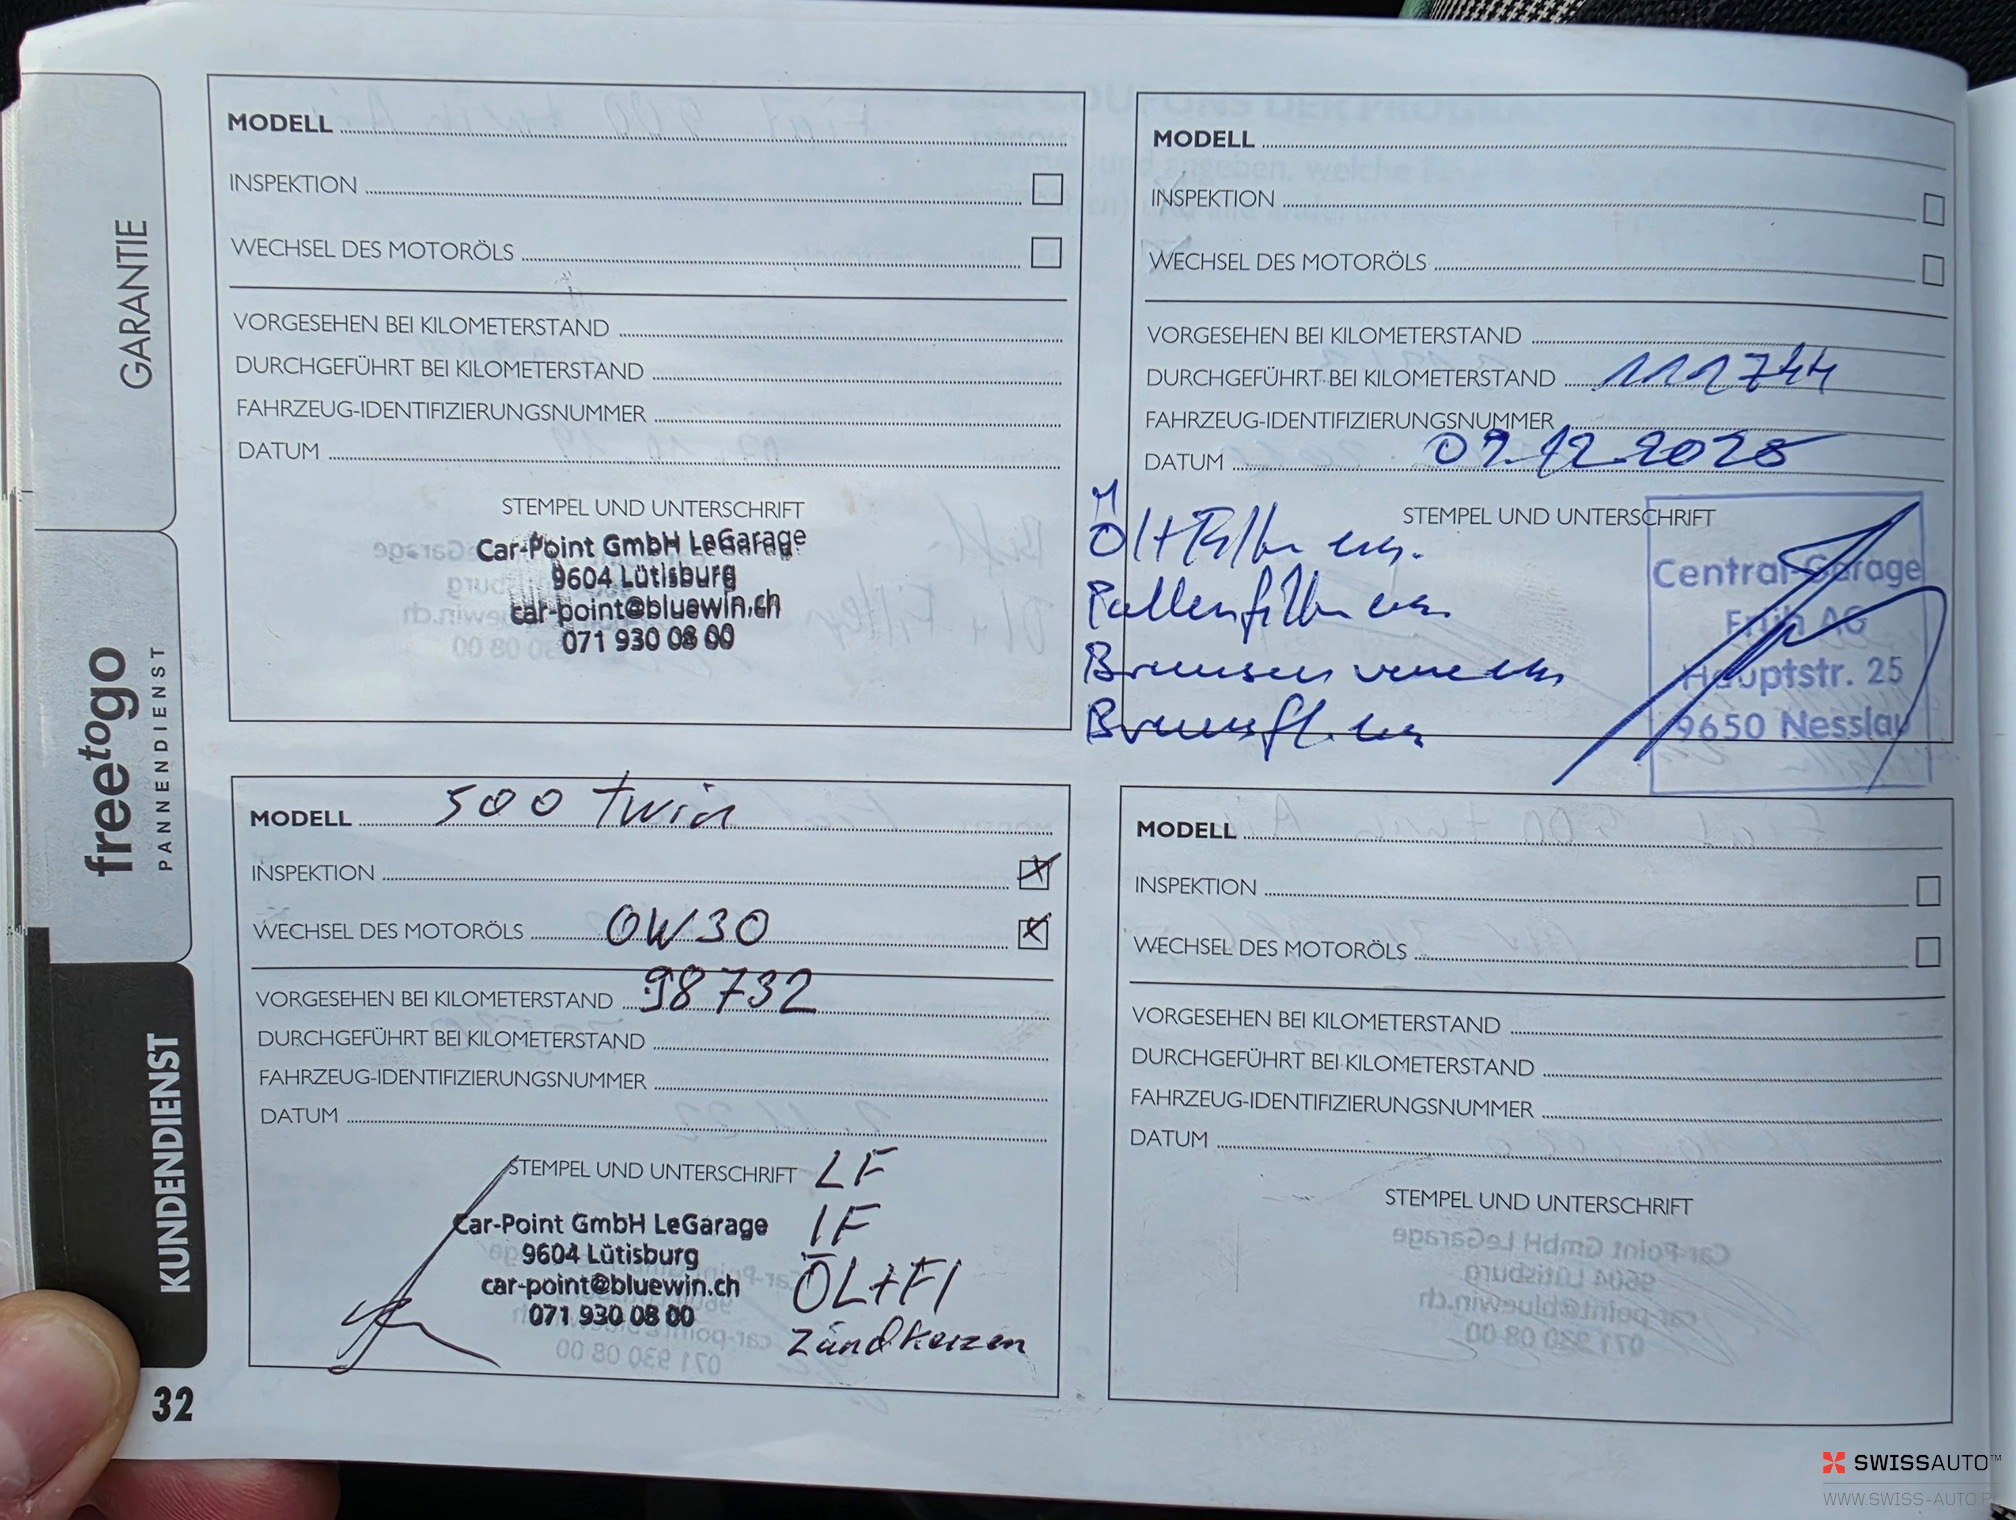 GARANTIE
freetogo
PANNENDIENST
KUNDENDIENST
32
MODELL
INSPEKTION
WECHSEL DES MOTORÖLS
VORGESEHEN BEI KILOMETERSTAND
DURCHGEFÜHRT BEI KILOMETERSTAND
FAHRZEUG-IDENTIFIZIERUNGSNUMMER
DATUM
STEMPEL UND UNTERSCHRIFT
Car-Point GmbH LeGarage
9604 Lütisburg
car-point@bluewin.ch
071 930 08 00
MODELL
INSPEKTION
WECHSEL DES MOTORÖLS
VORGESEHEN BEI KILOMETERSTAND
DURCHGEFÜHRT BEI KILOMETERSTAND 111744
FAHRZEUG-IDENTIFIZIERUNGSNUMMER
DATUM 09.12.2025
STEMPEL UND UNTERSCHRIFT
Öl+Filter
Pollenfilter
Bremsen
Bremsfl.
Central-Garage
Früh AG
Hauptstr. 25
9650 Nesslau
MODELL 500 twin
INSPEKTION X
WECHSEL DES MOTORÖLS 0W30 X
VORGESEHEN BEI KILOMETERSTAND 98732
DURCHGEFÜHRT BEI KILOMETERSTAND
FAHRZEUG-IDENTIFIZIERUNGSNUMMER
DATUM
STEMPEL UND UNTERSCHRIFT LF
Car-Point GmbH LeGarage IF
9604 Lütisburg
car-point@bluewin.ch ÖL+FI
071 930 08 00
Zündkerzen
MODELL
INSPEKTION
WECHSEL DES MOTORÖLS
VORGESEHEN BEI KILOMETERSTAND
DURCHGEFÜHRT BEI KILOMETERSTAND
FAHRZEUG-IDENTIFIZIERUNGSNUMMER
DATUM
STEMPEL UND UNTERSCHRIFT
SWISSAUTO™
WWW.SWISS-AUTO.